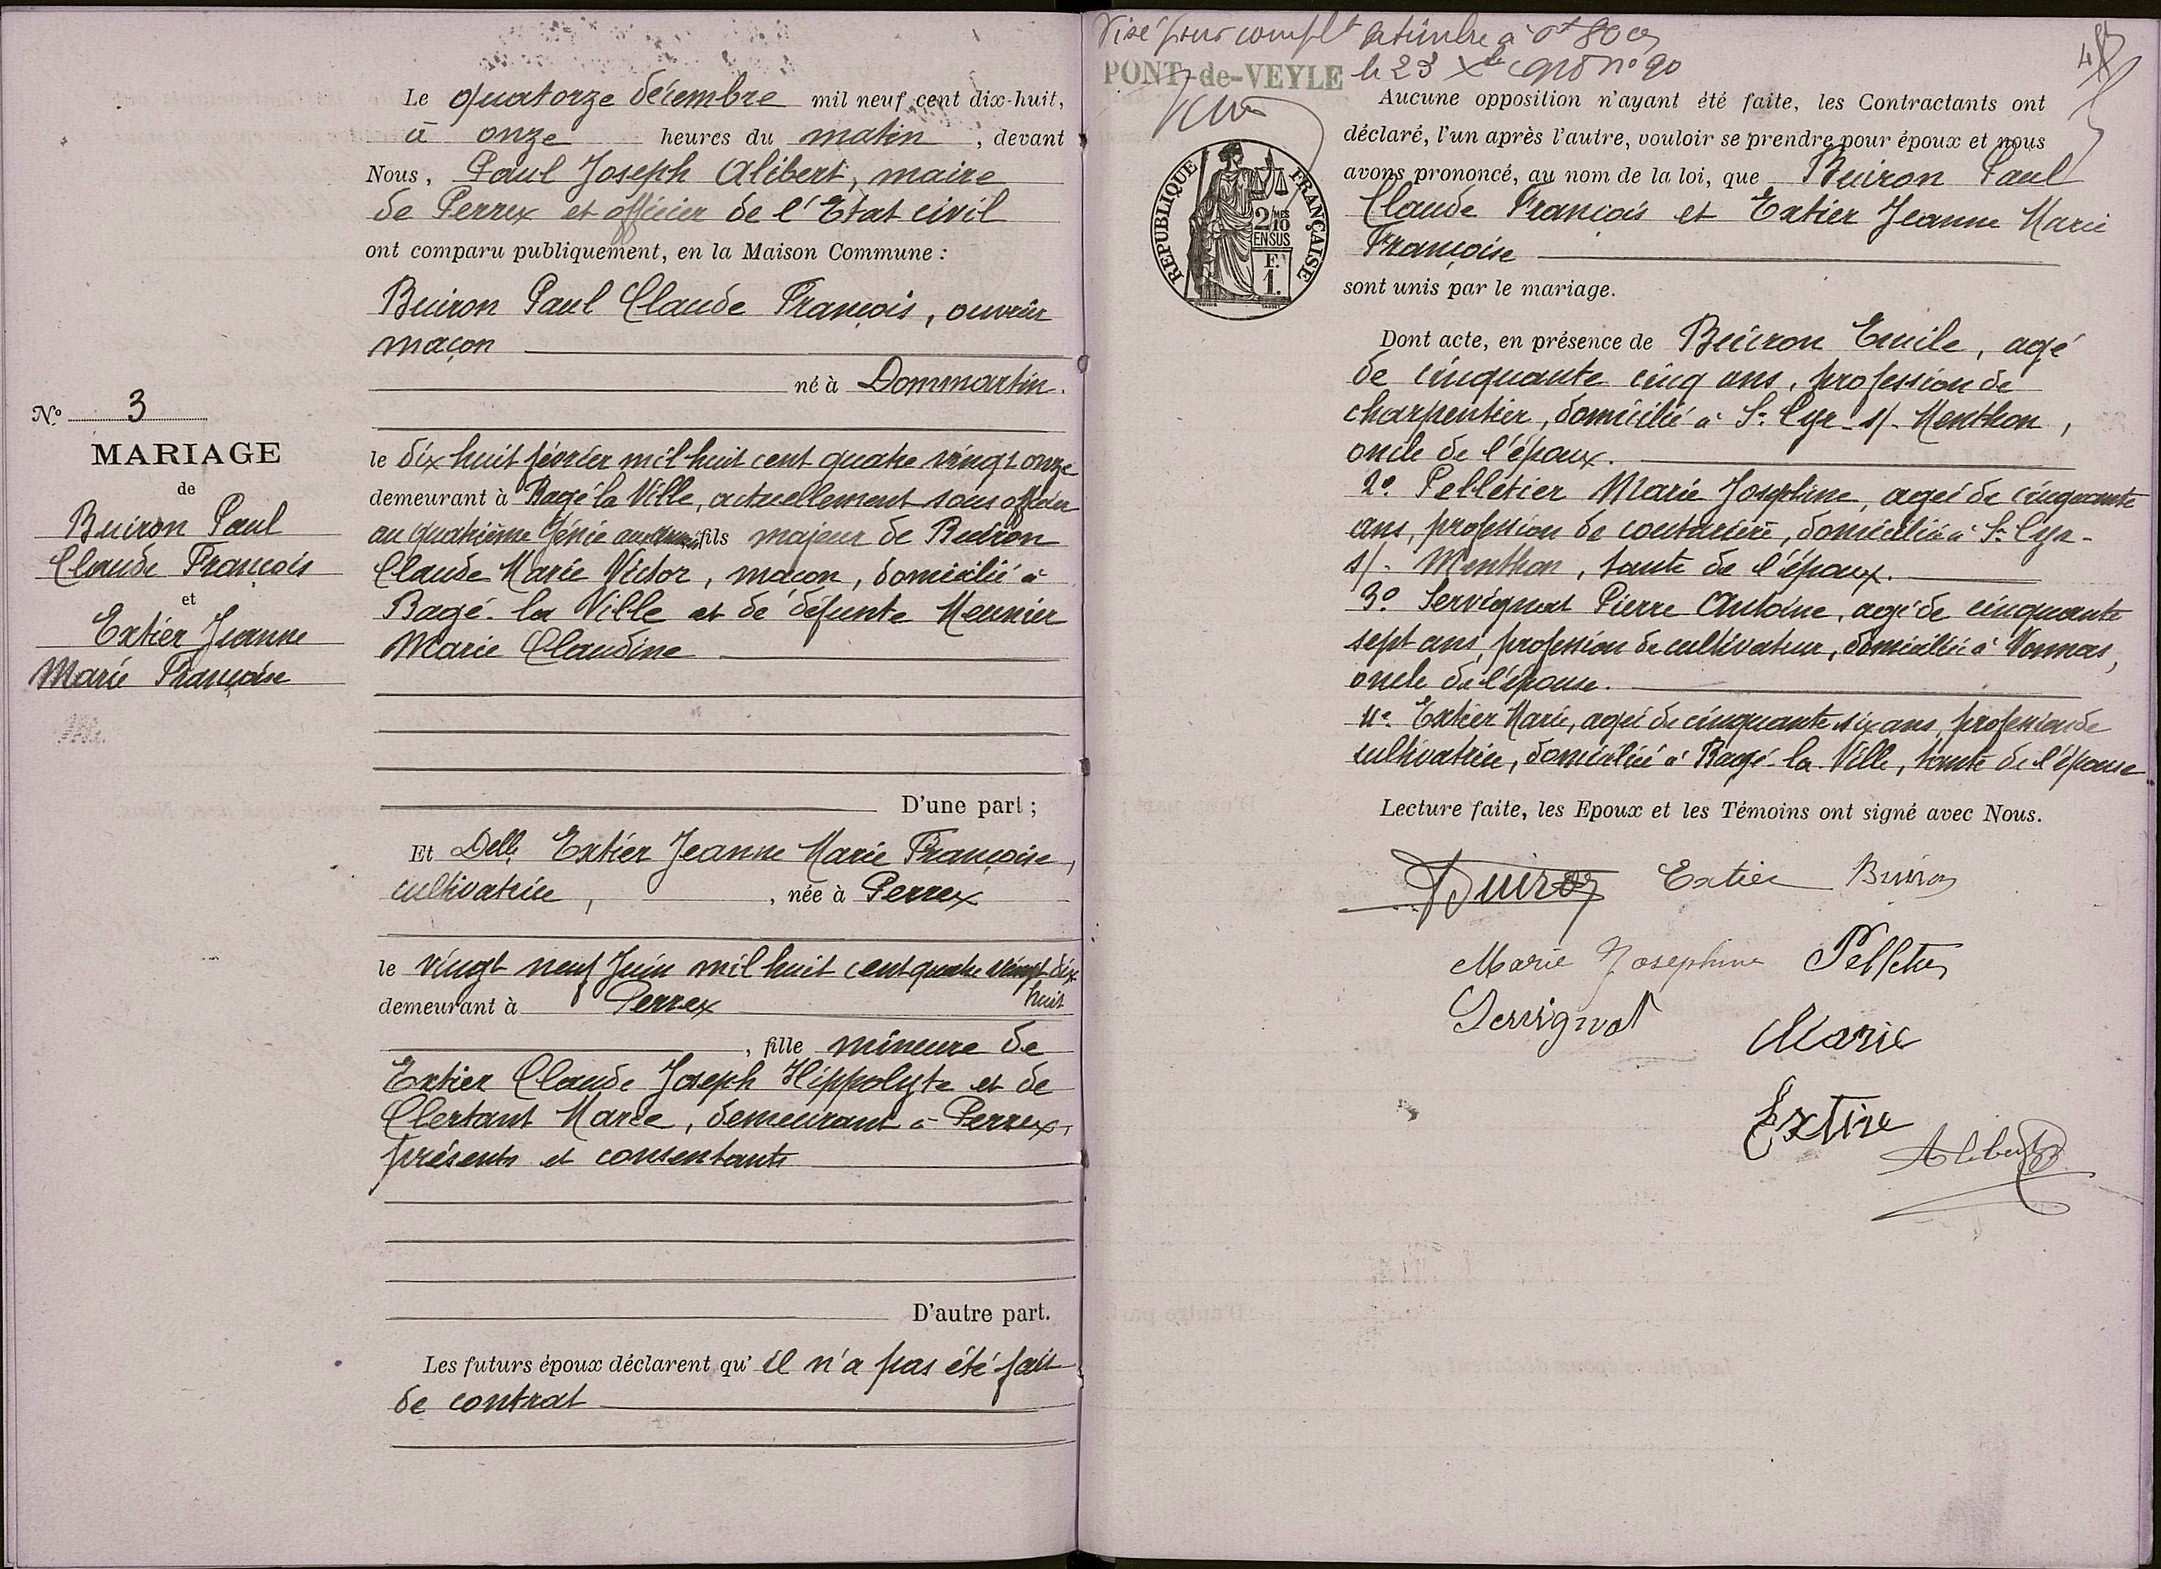 Le quatorze décembre mil neuf cent dix-huit,
à onze heures du matin, devant
Nous, Paul Joseph Alibert, maire
de Perrex et officier de l'Etat civil
ont comparu publiquement, en la Maison Commune :
Buiron Paul Claude François, ouvrier
maçon
né à Dommartin.
le dix huit février mil huit cent quatre vingt onze
demeurant à Bagé la Ville, actuellement sous officier
au quatrième Génie fils majeur de Buiron
Claude Marie Victor, maçon, domicilié à
Bagé-la Ville et de défunte Meunier
Marie Claudine
D'une part ;
Et Delle Extier Jeanne Marie Françoise,
cultivatrice, , née à Perrex
le vingt neuf Juin mil huit cent quatre vingt dix
huit
demeurant à Perrex
, fille mineure de
Extier Claude Joseph Hippolyte et de
Clertant Marie, demeurant à Perrex,
présents et consentants
D'autre part.
Les futurs époux déclarent qu'il n'a pas été fait
de contrat
No 3
MARIAGE
de
Buiron Paul
Claude François
et
Extier Jeanne
Marie Françoise
Visé pour complt de timbre à 0f 80
PONT-de-VEYLE le 23 Xbre no 90
RÉPUBLIQUE FRANÇAISE
2/10 MES
EN SUS
F.
1.
Aucune opposition n'ayant été faite, les Contractants ont
déclaré, l'un après l'autre, vouloir se prendre pour époux et nous
avons prononcé, au nom de la loi, que Buiron Paul
Claude François et Extier Jeanne Marie
Françoise
sont unis par le mariage.
Dont acte, en présence de Buiron Emile, agé
de cinquante cinq ans, profession de
charpentier, domicilié à St Cyr-s/-Menthon,
oncle de l'époux.
2o Pelletier Marie Josephine, agée de cinquante
ans, profession de couturière, domiciliée à St Cyr-
s/- Menthon, tante de l'époux.
3o Servignat Pierre Antoine, agé de cinquante
sept ans, profession de cultivateur, domicilié à Vonnas,
oncle de l'épouse.
4o Extier Marie, agée de cinquante six ans, profession de
cultivatrice, domiciliée à Bagé-la-Ville, tante de l'épouse
Lecture faite, les Epoux et les Témoins ont signé avec Nous.
Buiron Extier Buiron
Marie Josephine Pelletier
Servignat Marie
Extier
Alibert